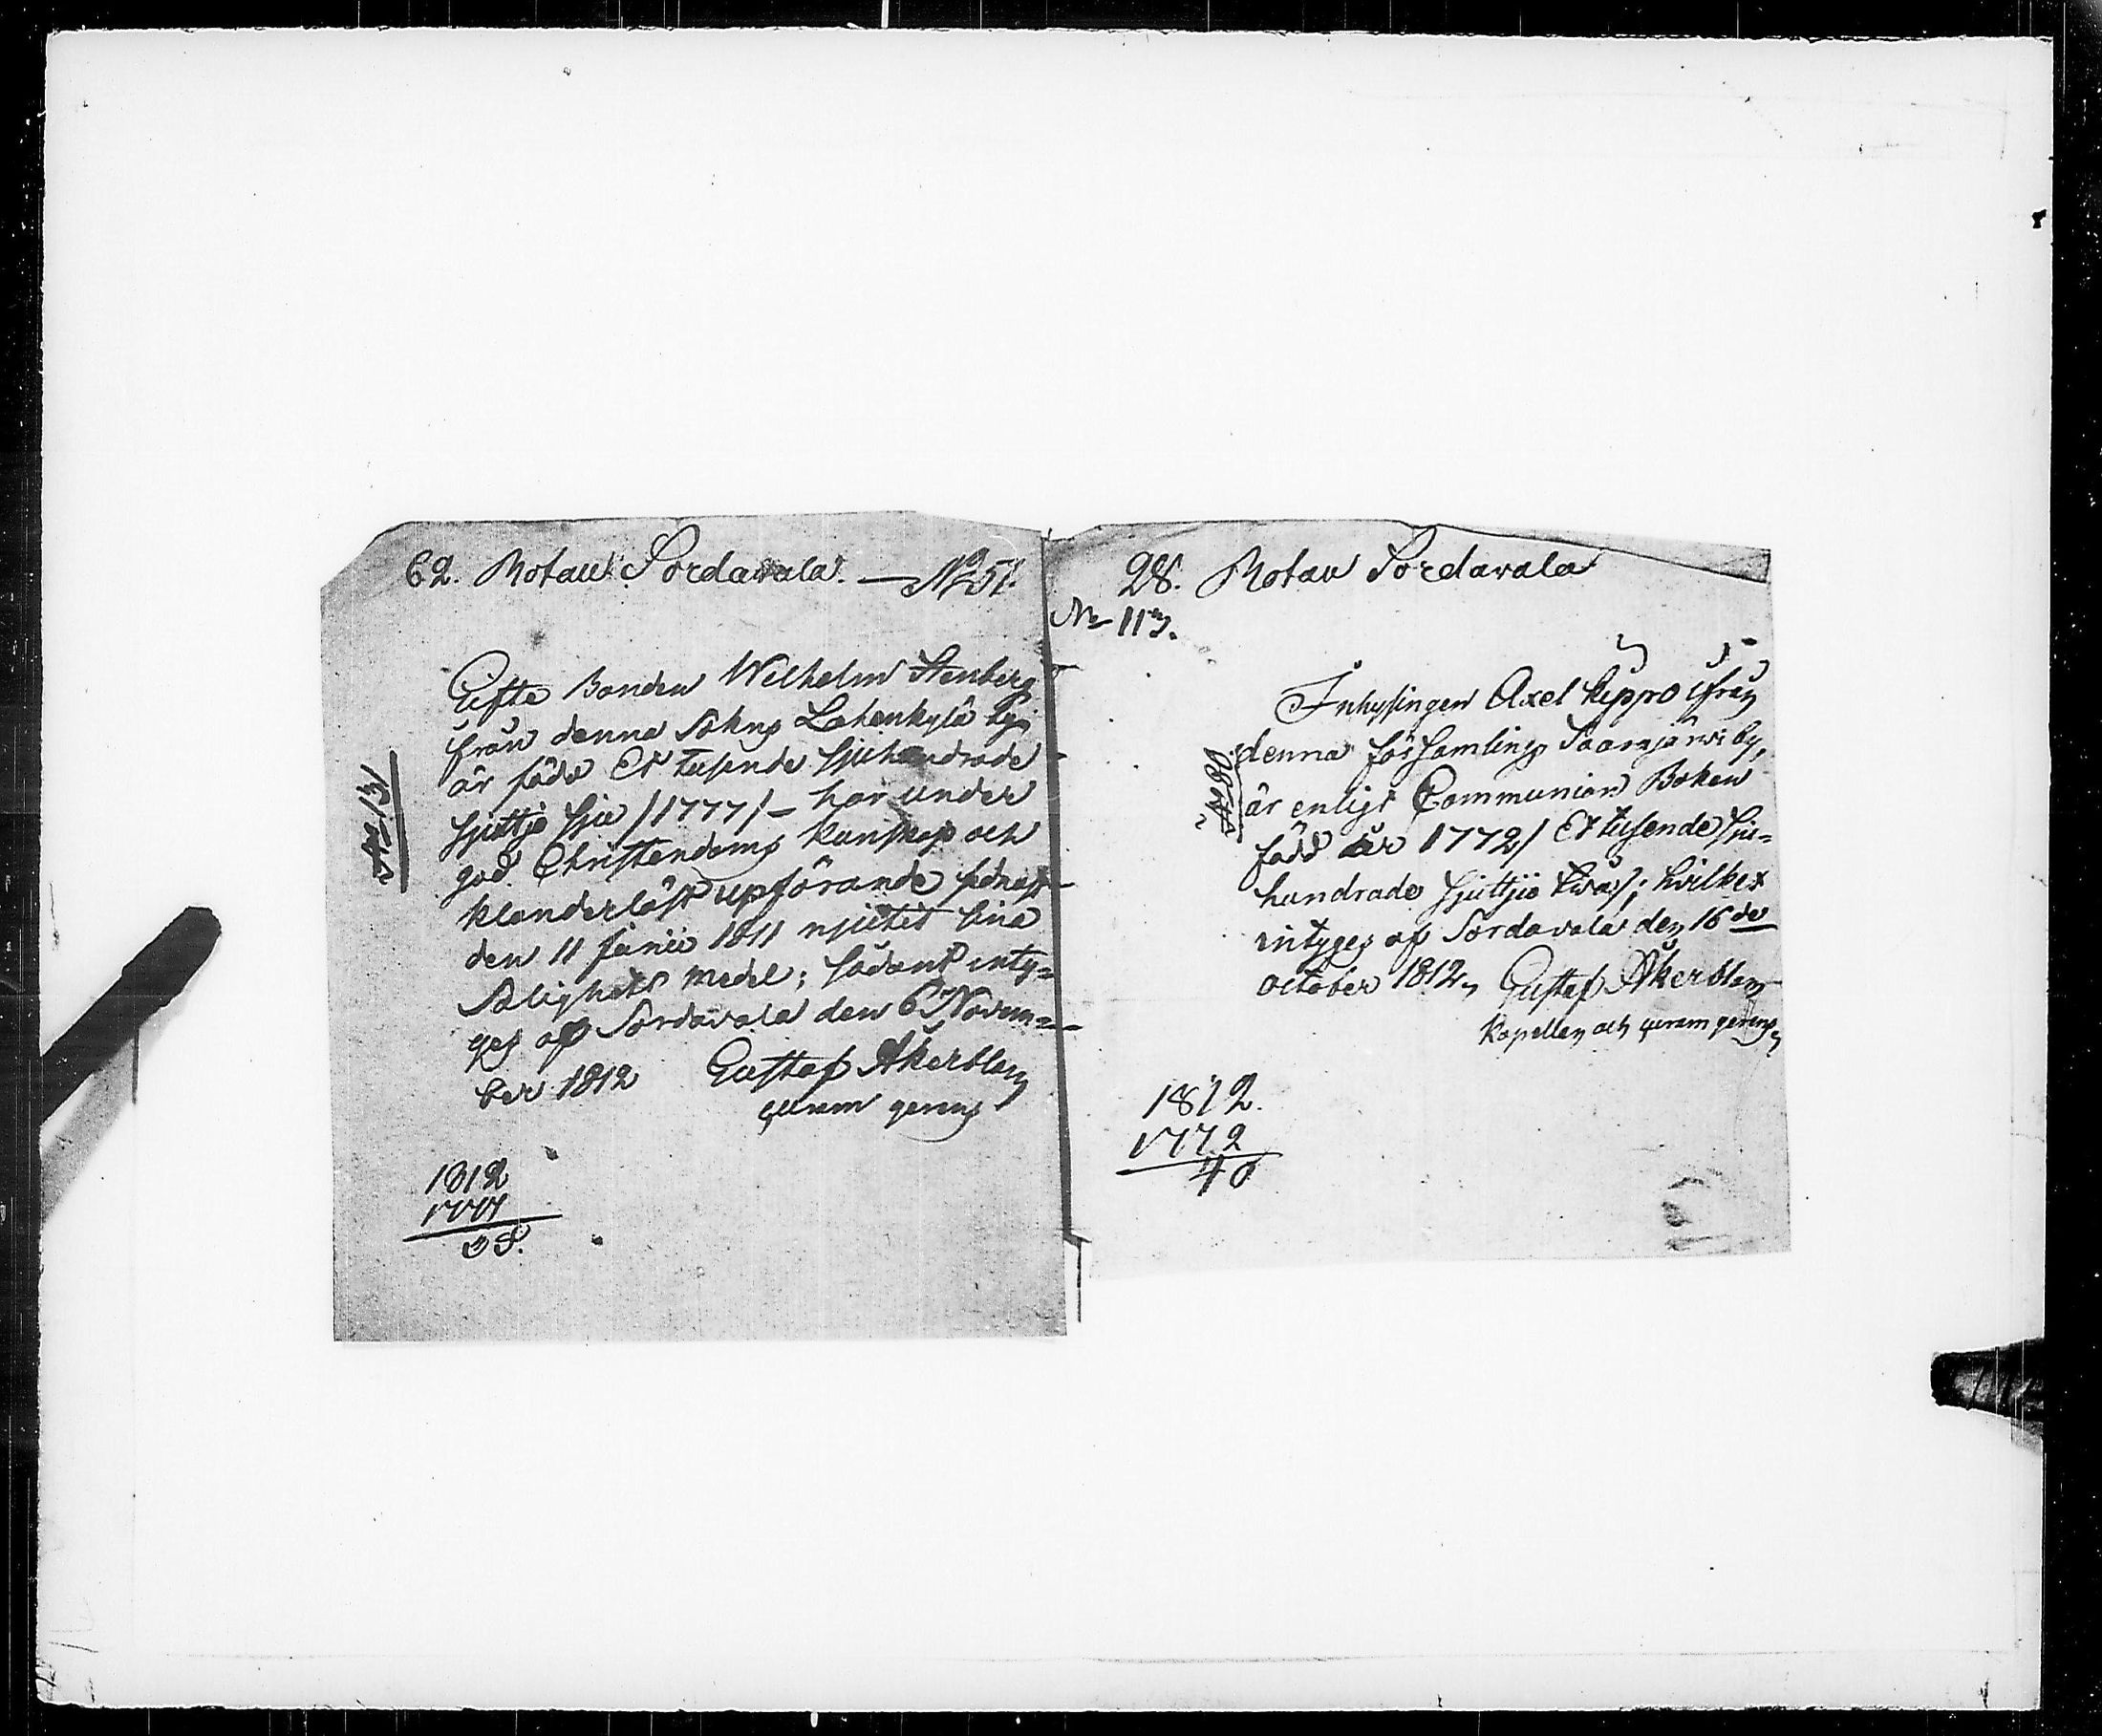 62. Rotan Sordavala. — No 51.
Gifte Bonden Wilhelm Stenberg
från denna Sokns Lahenkylä by
är född Et tusende sjuhundrade
sjuttjo sju /1777/ – har under
god Christendoms kunskap och
klanderlöst upförande sidnast
den 11 Junii 1811 njutit sina
Salighets medel; sådant inty=
ges af Sordavala den 6 Novem=
ber 1812 Gustaf Åkerblom
curam gerens
No 131
1812
1777
35.
28. Rotan Sordavala
No 113.
Inhysingen Axel Kippo ifrån
denna församlings Saarajärvi by,
är enligt Communion Boken
född år 1772/ Et tusende sju=
hundrade sjuttjio twå/; hvilket
intyges af Sordavala den 16de
october 1812, Gustaf Åkerblom
Kapellan och curam gerens
No 80
1812.
1772
40